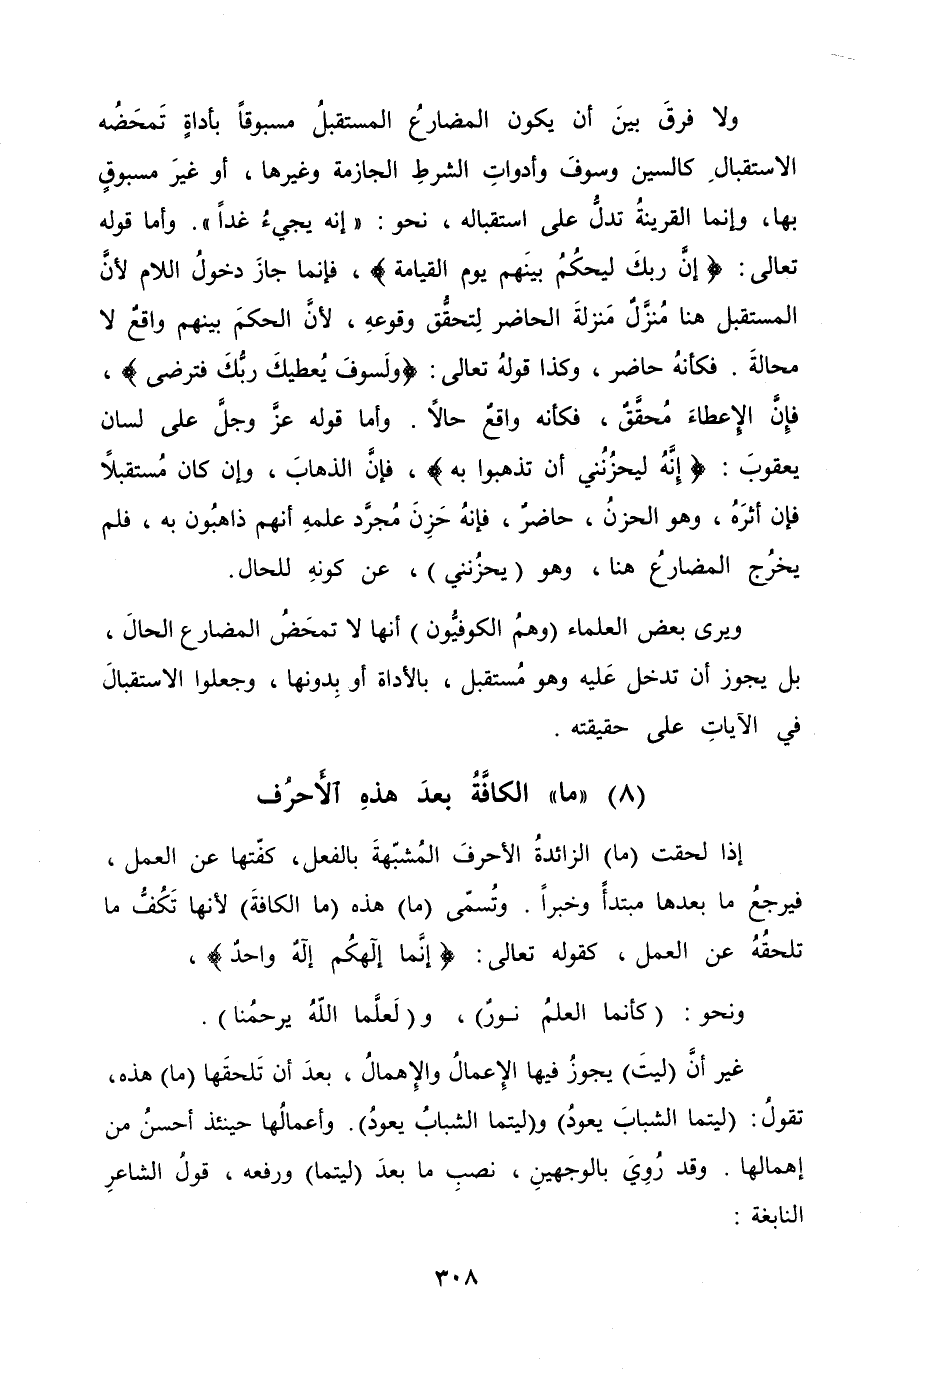 ولا فرقَ بينَ أن يكون المضارعُ المستقبلُ مسبوقاً بأداةٍ تَمحَضُه
الاستقبالِ كالسين وسوفَ وأدواتِ الشرطِ الجازمة وغيرها ، أو غيرَ مسبوقٍ
بها، وإنما القرينةُ تدلُّ على استقباله ، نحو : « إنه يجيءُ غداً ». وأما قوله
تعالى : ﴿ إنَّ ربكَ ليحكُمُ بينَهم يوم القيامة ﴾ ، فإنما جازَ دخولُ اللام لأنَّ
المستقبل هنا مُنزَّلٌ مَنزلةَ الحاضر لِتحقُّق وقوعهِ ، لأنَّ الحكمَ بينهم واقعٌ لا
محالةَ . فكأنهُ حاضر ، وكذا قولهُ تعالى : ﴿ولَسوفَ يُعطيكَ ربُّكَ فترضى ﴾ ،
فإِنَّ الإِعطاءَ مُحقَّقٌ ، فكأنه واقعٌ حالاً . وأما قوله عزَّ وجلَّ على لسان
يعقوبَ : ﴿ إِنَّهُ ليحزُنُني أن تذهبوا به ﴾ ، فإنَّ الذهابَ ، وإن كان مُستقبلًا
فإن أثرَهُ ، وهو الحزنُ ، حاضرٌ ، فإنهُ حَزِنَ مُجرَّد علمهِ أنهم ذاهبُون به ، فلم
يخرُج المضارعُ هنا ، وهو ( يحزُنني ) ، عن كونهِ للحال.
ويرى بعض العلماء (وهمُ الكوفيُّون ) أنها لا تمحَضُ المضارع الحالَ ،
بل يجوز أن تدخل عَليه وهو مُستقبل ، بالأداة أو بِدونها ، وجعلوا الاستقبالَ
في الآياتِ على حقيقته .
(٨) «ما» الكافَّةُ بعدَ هذهِ ٱلأَحرُف
إذا لحقت (ما) الزائدةُ الأحرفَ المُشبّهةَ بالفعل، كفّتها عن العمل ،
فيرجعُ ما بعدها مبتدأً وخبراً . وتُسمّى (ما) هذه (ما الكافةَ) لأنها تَكُفُّ ما
تلحقُهُ عن العمل ، كقوله تعالى : ﴿ إنَّما إلَهكُم إلَهٌ واحدٌ ﴾ ،
ونحو : ( كأنما العلمُ نـورٌ) ، و ( لَعلَّما اللّهُ يرحمُنا ) .
غير أنَّ (ليتَ) يجوزُ فيها الإعمالُ والإهمالُ ، بعدَ أن تَلحقَها (ما) هذه،
تقولُ: (ليتما الشبابَ يعودُ) و(ليتما الشبابُ يعودُ). وأعمالُها حينئذ أحسنُ من
إهمالها . وقد رُوِيَ بالوجهينِ ، نصبِ ما بعدَ (ليتما) ورفعه ، قولُ الشاعرِ
النابغة :
٣٠٨